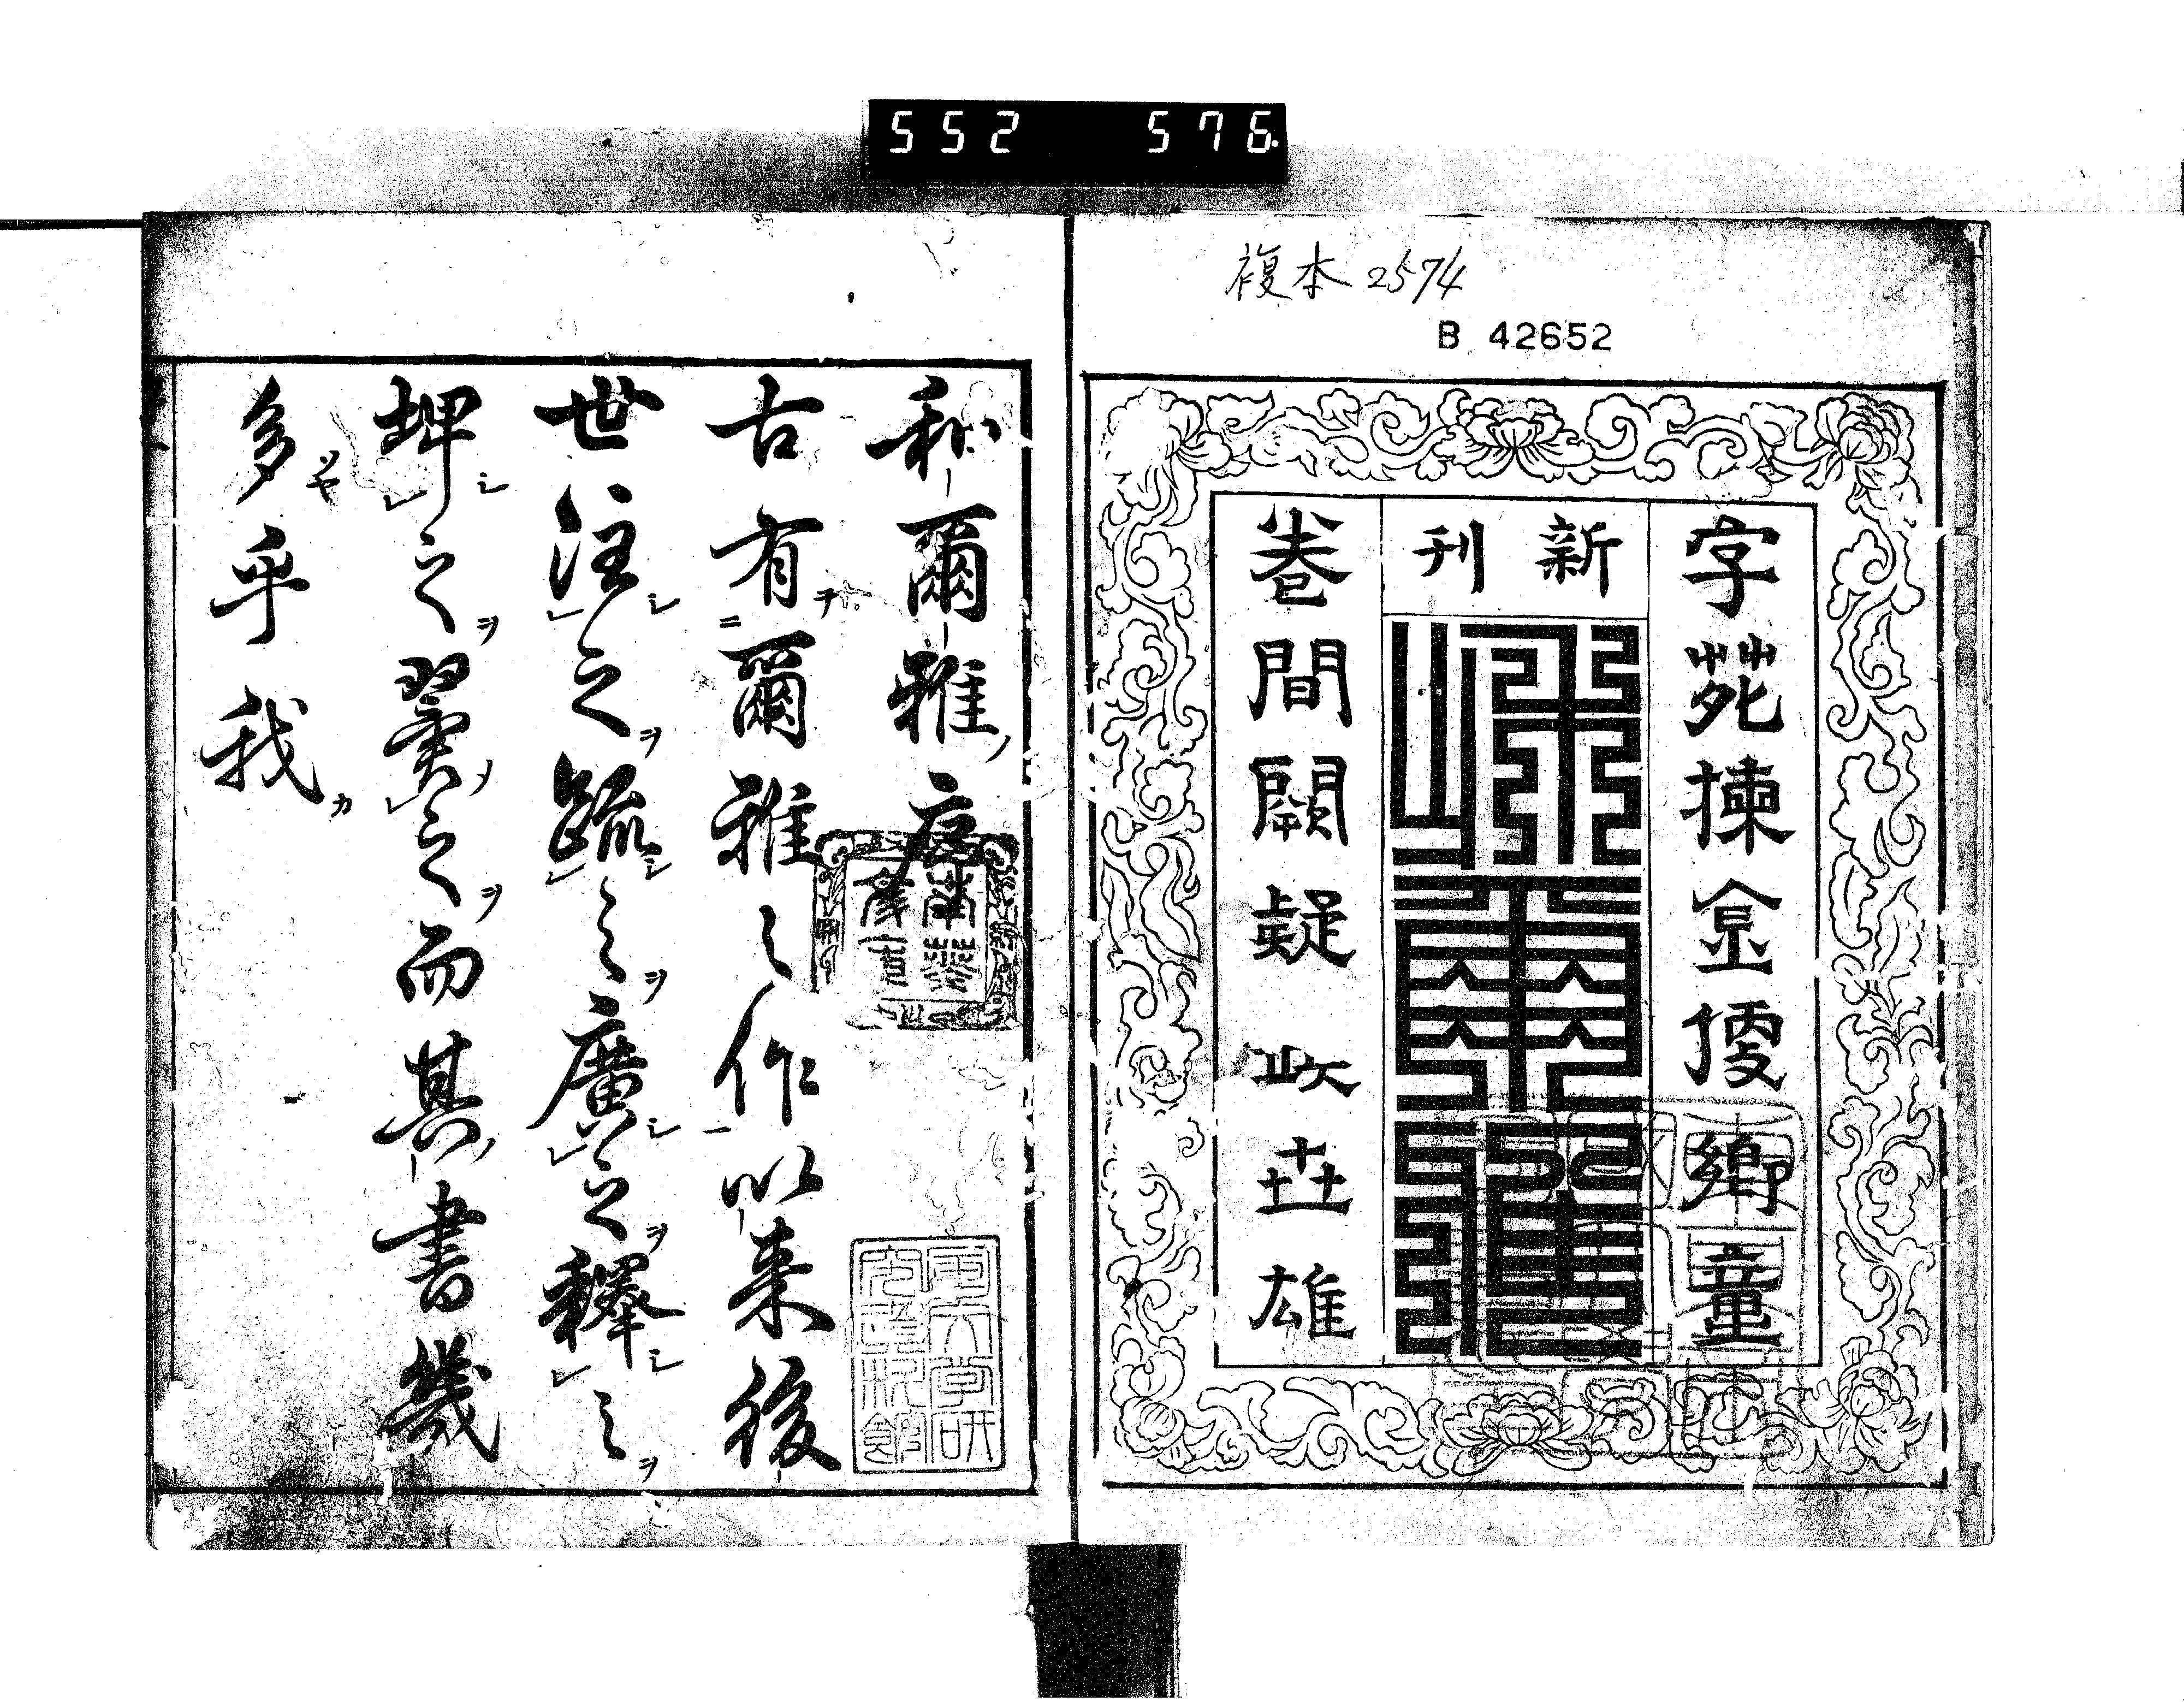 552 576
複本 2574
B 42652
字苑揀金便鄉童
新刊
和爾雅
卷間闕疑政世雄
和爾雅序
古有爾雅之作以来後
世注之疏之廣之釋之
埤之翼之而其書幾
多乎哉